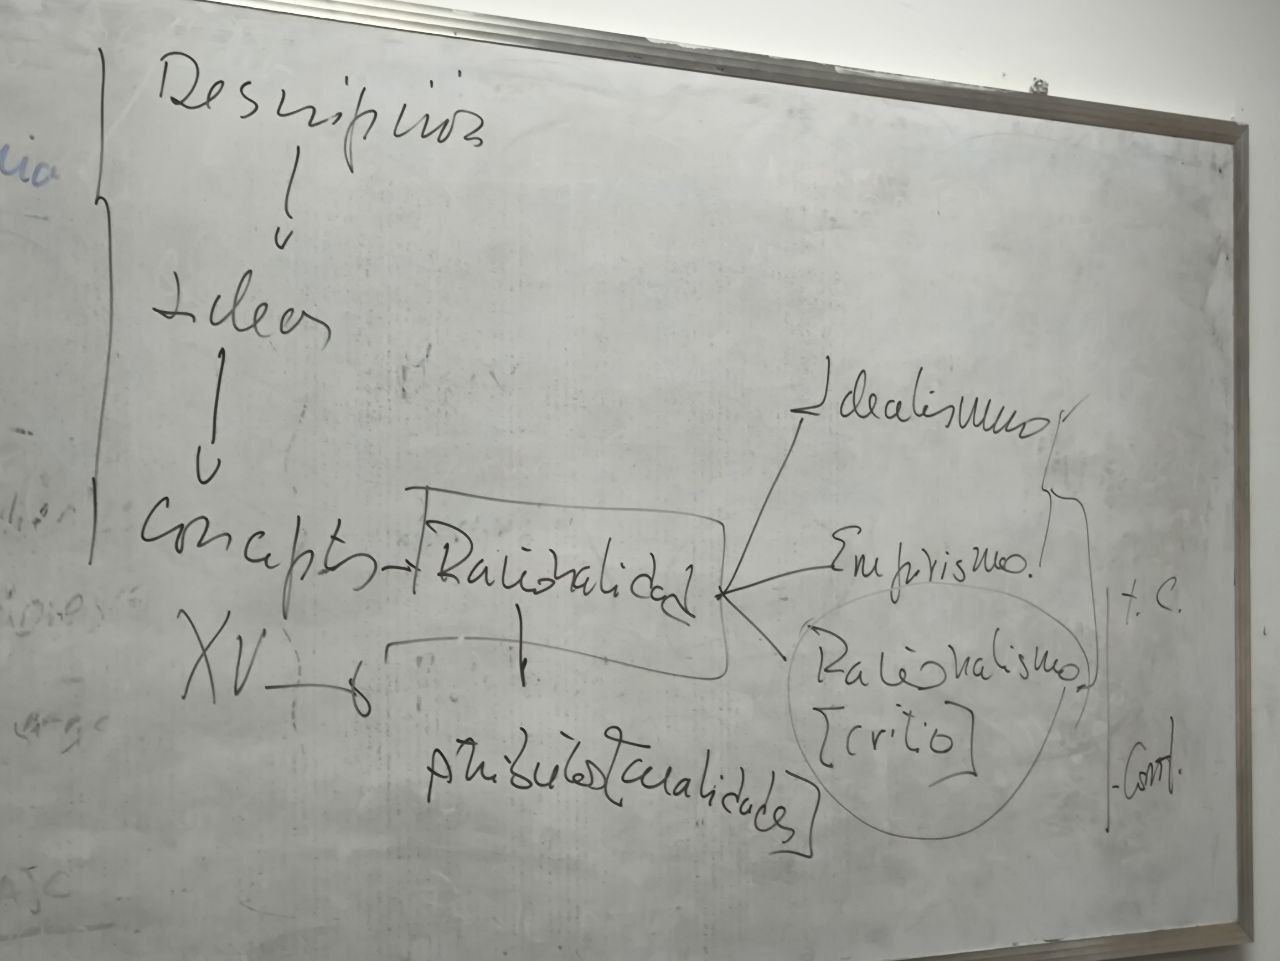 Descripción
Ideas
Concepto
Racionalidad
XV
Atributos [cualidades]
Idealismo
Empirismo.
Racionalismo
[critico]
t. C.
- Cont.